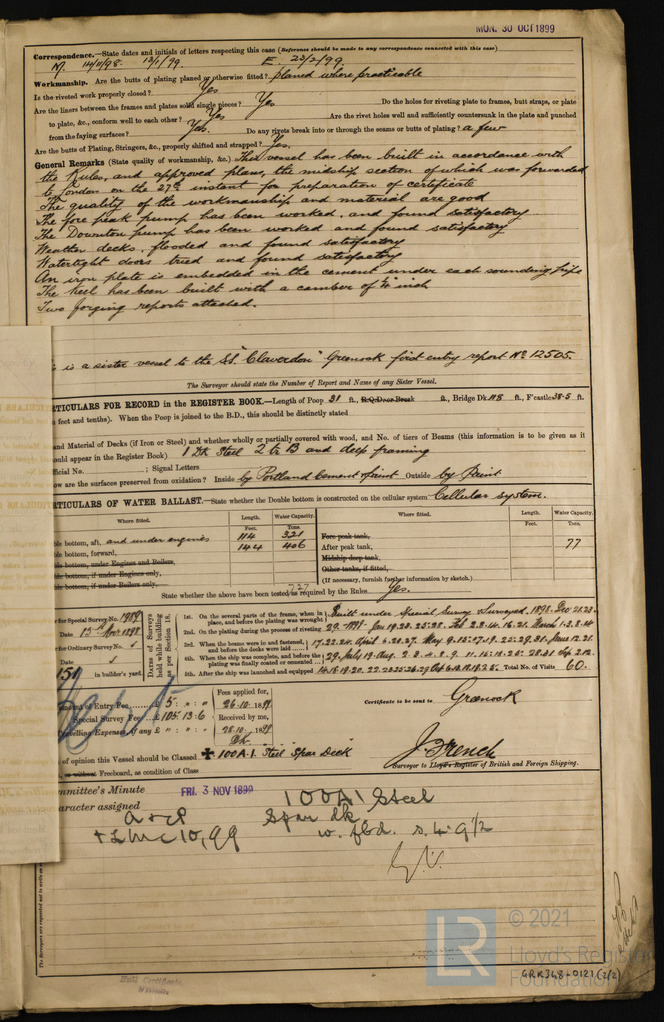 MON. 30 OCT 1899
Correspondence.—State dates and initials of letters respecting this case (Reference should be made to any correspondence connected with this case)
M. 14/11/98. 13/1/99. E. 23/2/99.
Workmanship. Are the butts of plating planed or otherwise fitted? planed where practicable
Is the riveted work properly closed? Yes
Are the liners between the frames and plates solid single pieces? Yes Do the holes for riveting plate to frames, butt straps, or plate
to plate, &c., conform well to each other? Yes Are the rivet holes well and sufficiently countersunk in the plate and punched
from the faying surfaces? Yes. Do any rivets break into or through the seams or butts of plating? a few
Are the butts of Plating, Stringers, &c., properly shifted and strapped? Yes.
General Remarks (State quality of workmanship, &c.) This vessel has been built in accordance with
the Rules, and approved plans, the midship section of which was forwarded
to London on the 27th instant for preparation of certificate
The quality of the workmanship and material are good
The fore peak pump has been worked, and found satisfactory
The Downton pump has been worked and found satisfactory
Weather decks, flooded and found satisfactory
Watertight doors tried and found satisfactory
An iron plate is embedded in the cement under each sounding pipe
The keel has been built with a camber of ¾ inch
Two forging reports attached.
is a sister vessel to the SS. "Claverdon" Greenock first entry report No 12505.
The Surveyor should state the Number of Report and Name of any Sister Vessel.
RTICULARS FOR RECORD in the REGISTER BOOK.—Length of Poop 31 ft., R.Q.D. or Break ft., Bridge Dk. 118 ft., F'castle 38.5 ft.
feet and tenths). When the Poop is joined to the B.D., this should be distinctly stated
and Material of Decks (if Iron or Steel) and whether wholly or partially covered with wood, and No. of tiers of Beams (this information is to be given as it
ould appear in the Register Book) 1 Dk Steel 2 tr B and deep framing
ficial No. ; Signal Letters
ow are the surfaces preserved from oxidation? Inside by Portland Cement & paint Outside by Paint
RTICULARS OF WATER BALLAST.—State whether the Double bottom is constructed on the cellular system Cellular system.
Where fitted. Length. Water Capacity. Where fitted. Length. Water Capacity.
Feet. Tons. Feet. Tons.
le bottom, aft, and under engines 114 321 Fore peak tank,
le bottom, forward, 144 406 After peak tank, 77
le bottom, under Engines and Boilers, Midship deep tank,
le bottom, if under Engines only, Other tanks, if fitted,
le bottom, if under Boilers only, (If necessary, furnish further information by sketch.)
727
State whether the above have been tested as required by the Rules Yes.
for Special Survey No. 1989
Date 13th Novr 1898
for Ordinary Survey No.
Date
151 in builder's yard.
Dates of Surveys held while building as per Section 18.
1st. On the several parts of the frame, when in place, and before the plating was wrought Built under Special Survey Surveyed, 1898. Dec 21.23.
2nd. On the plating during the process of riveting
3rd. When the beams were in and fastened, and before the decks were laid
4th. When the ship was complete, and before the plating was finally coated or cemented
5th. After the ship was launched and equipped Total No. of Visits 60.
of Entry Fee £ 5 : " : "
Special Survey Fee £ 105 : 13 : 6
Travelling Expenses if any £ " : " : "
Fees applied for, 26.10.1899
Received by me, 28.10.1899
Certificate to be sent to Greenock
of opinion this Vessel should be Classed ✠ 100A.1. Steel Spar Deck
J. French
Surveyor to Lloyd's Register of British and Foreign Shipping.
or without Freeboard, as condition of Class
mmittee's Minute FRI. 3 NOV 1899
aracter assigned 100A1 Steel
Spar dk
w. fbd. s. 4. 9½
a & cp
+ LMC 10,99
Hull Certificate
Written
LR
© 2021
Lloyd's Register
Foundation
GRK348-0121 (2/2)